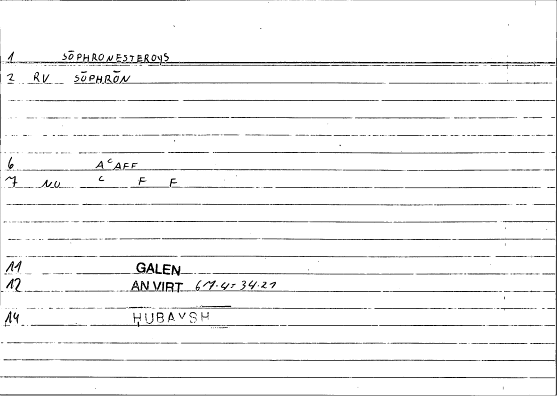 1 SŌPHRONESTEROYS
2 RV SŌPHRŌN
6 AᶜAFF
7 NU C F F
11 GALEN
12 AN VIRT 67.4 = 34.21
14 ḤUBAYSH